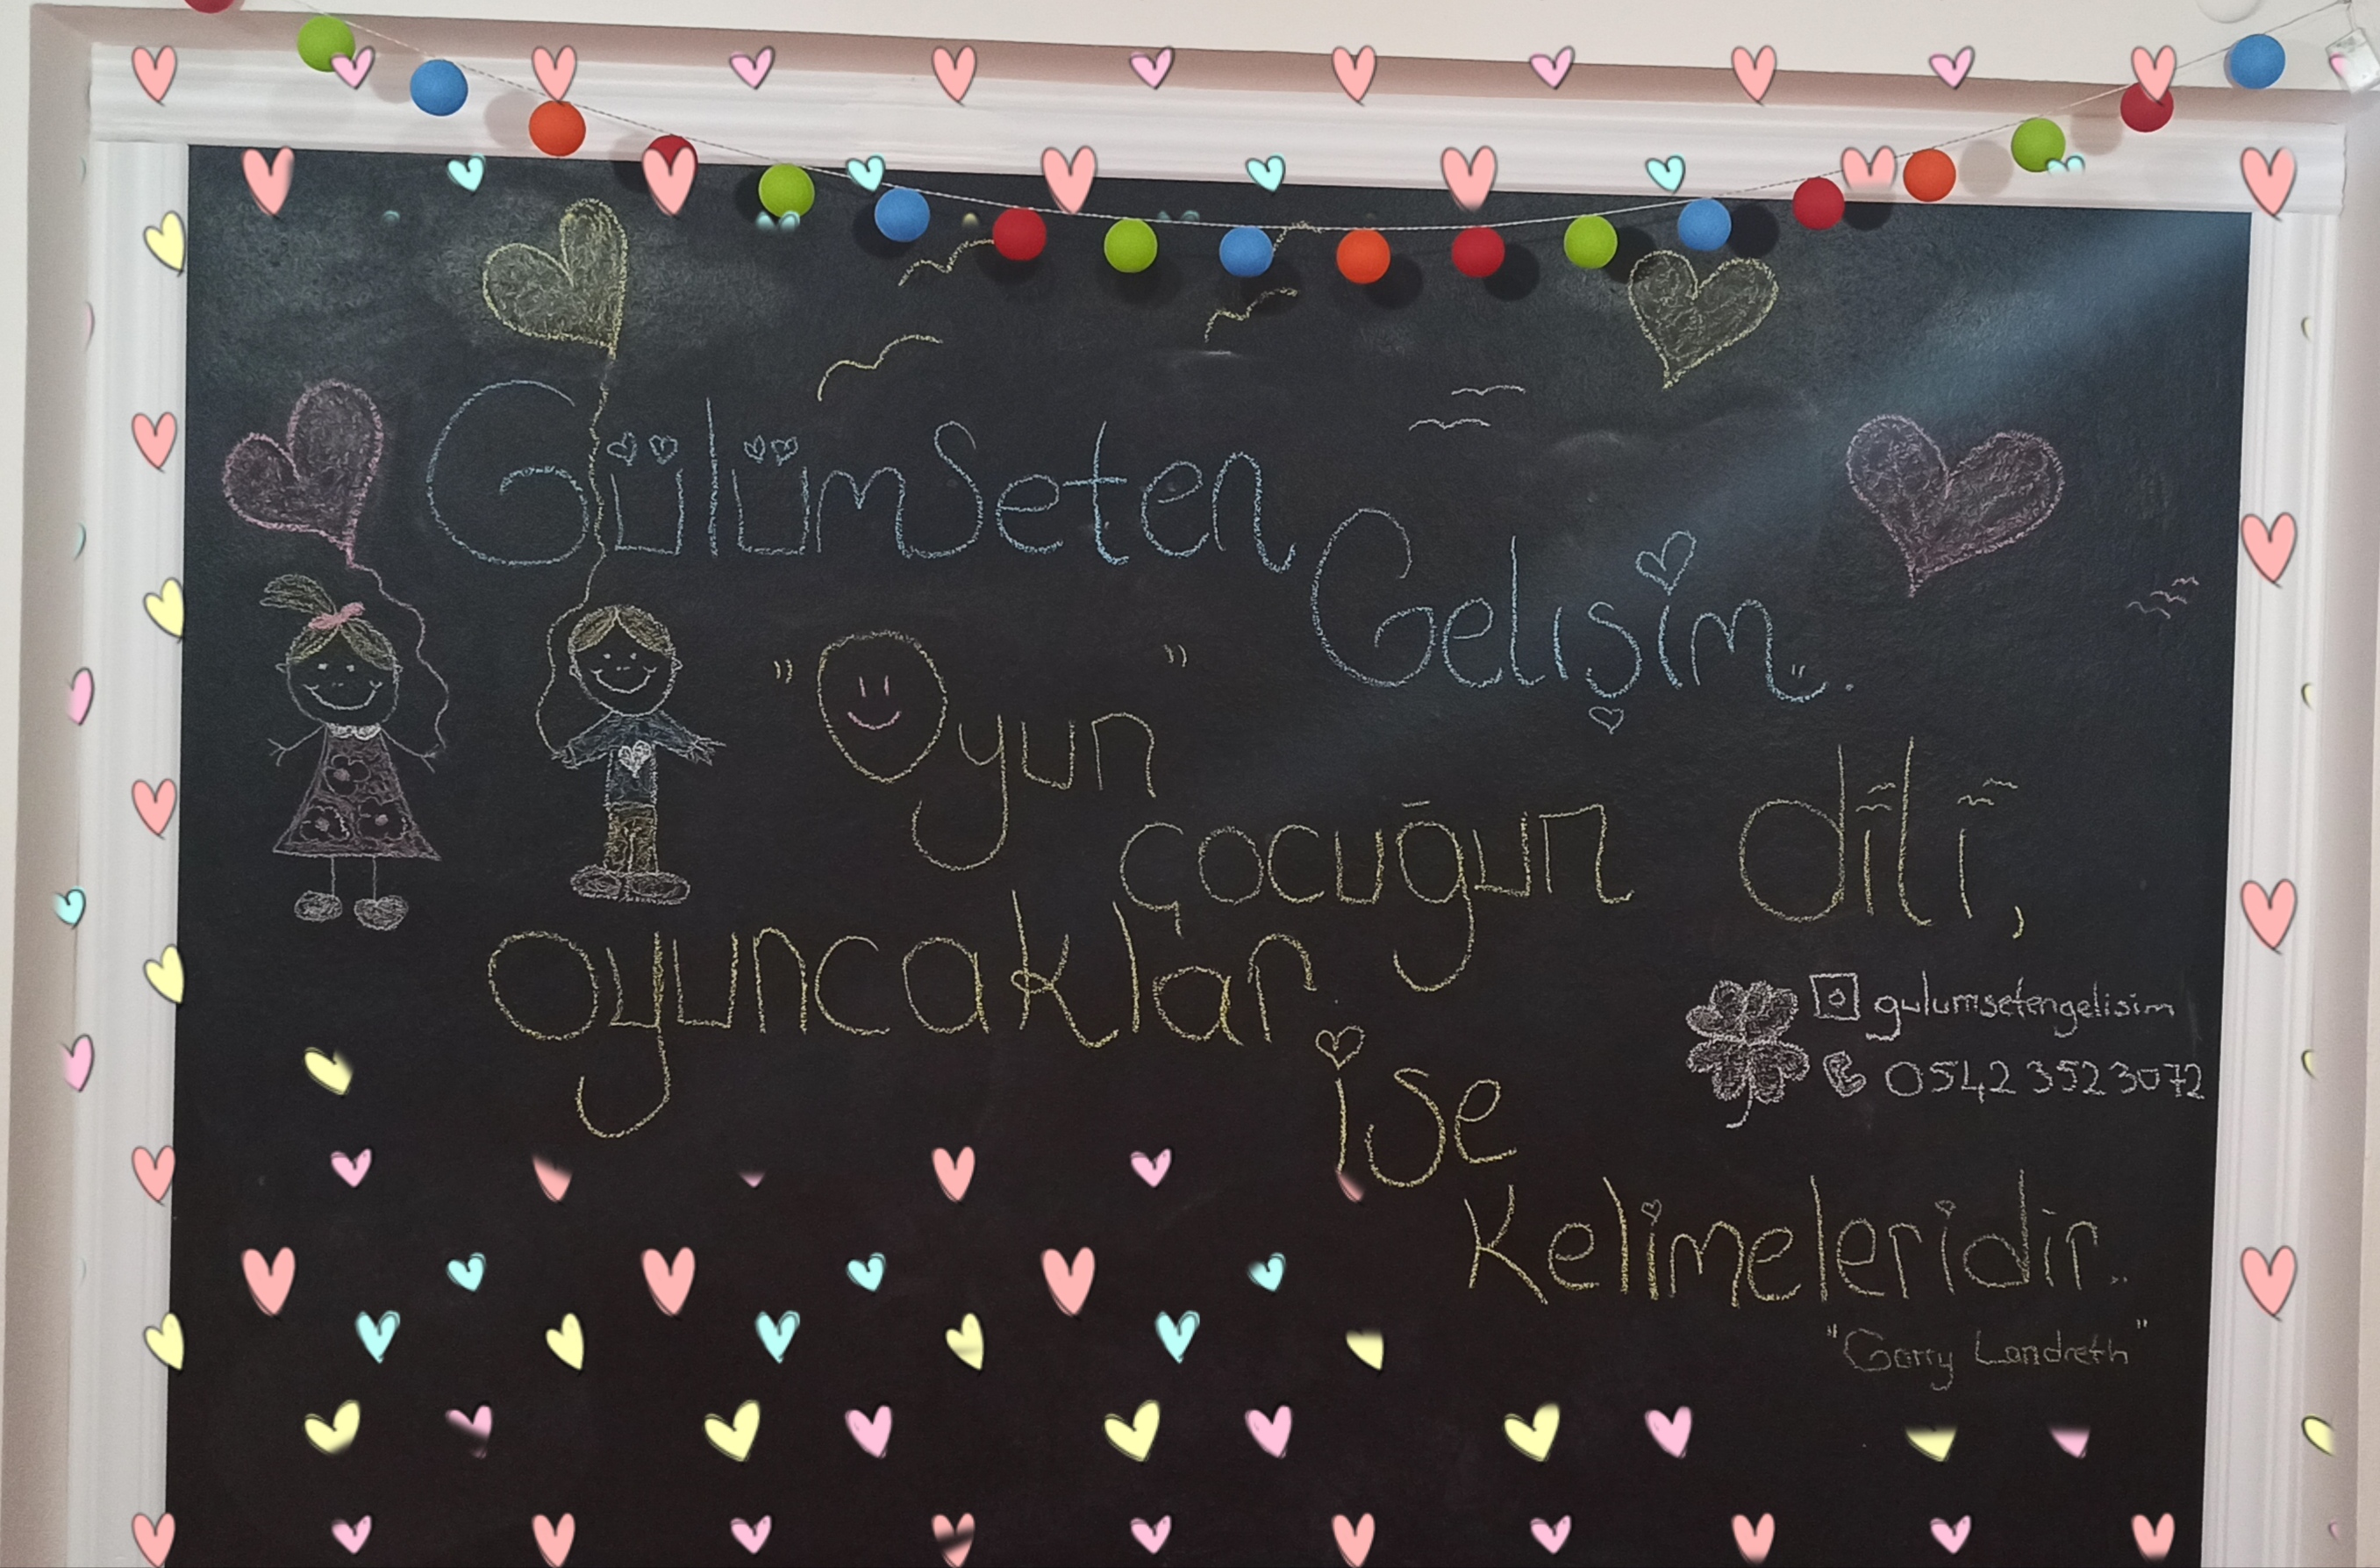 Gülümseten
Gelişim
" Oyun "
çocuğun dili,
oyuncaklar
ise
Kelimeleridir..
"Garry Landreth"
gulumsetengelisim
0542 352 3072